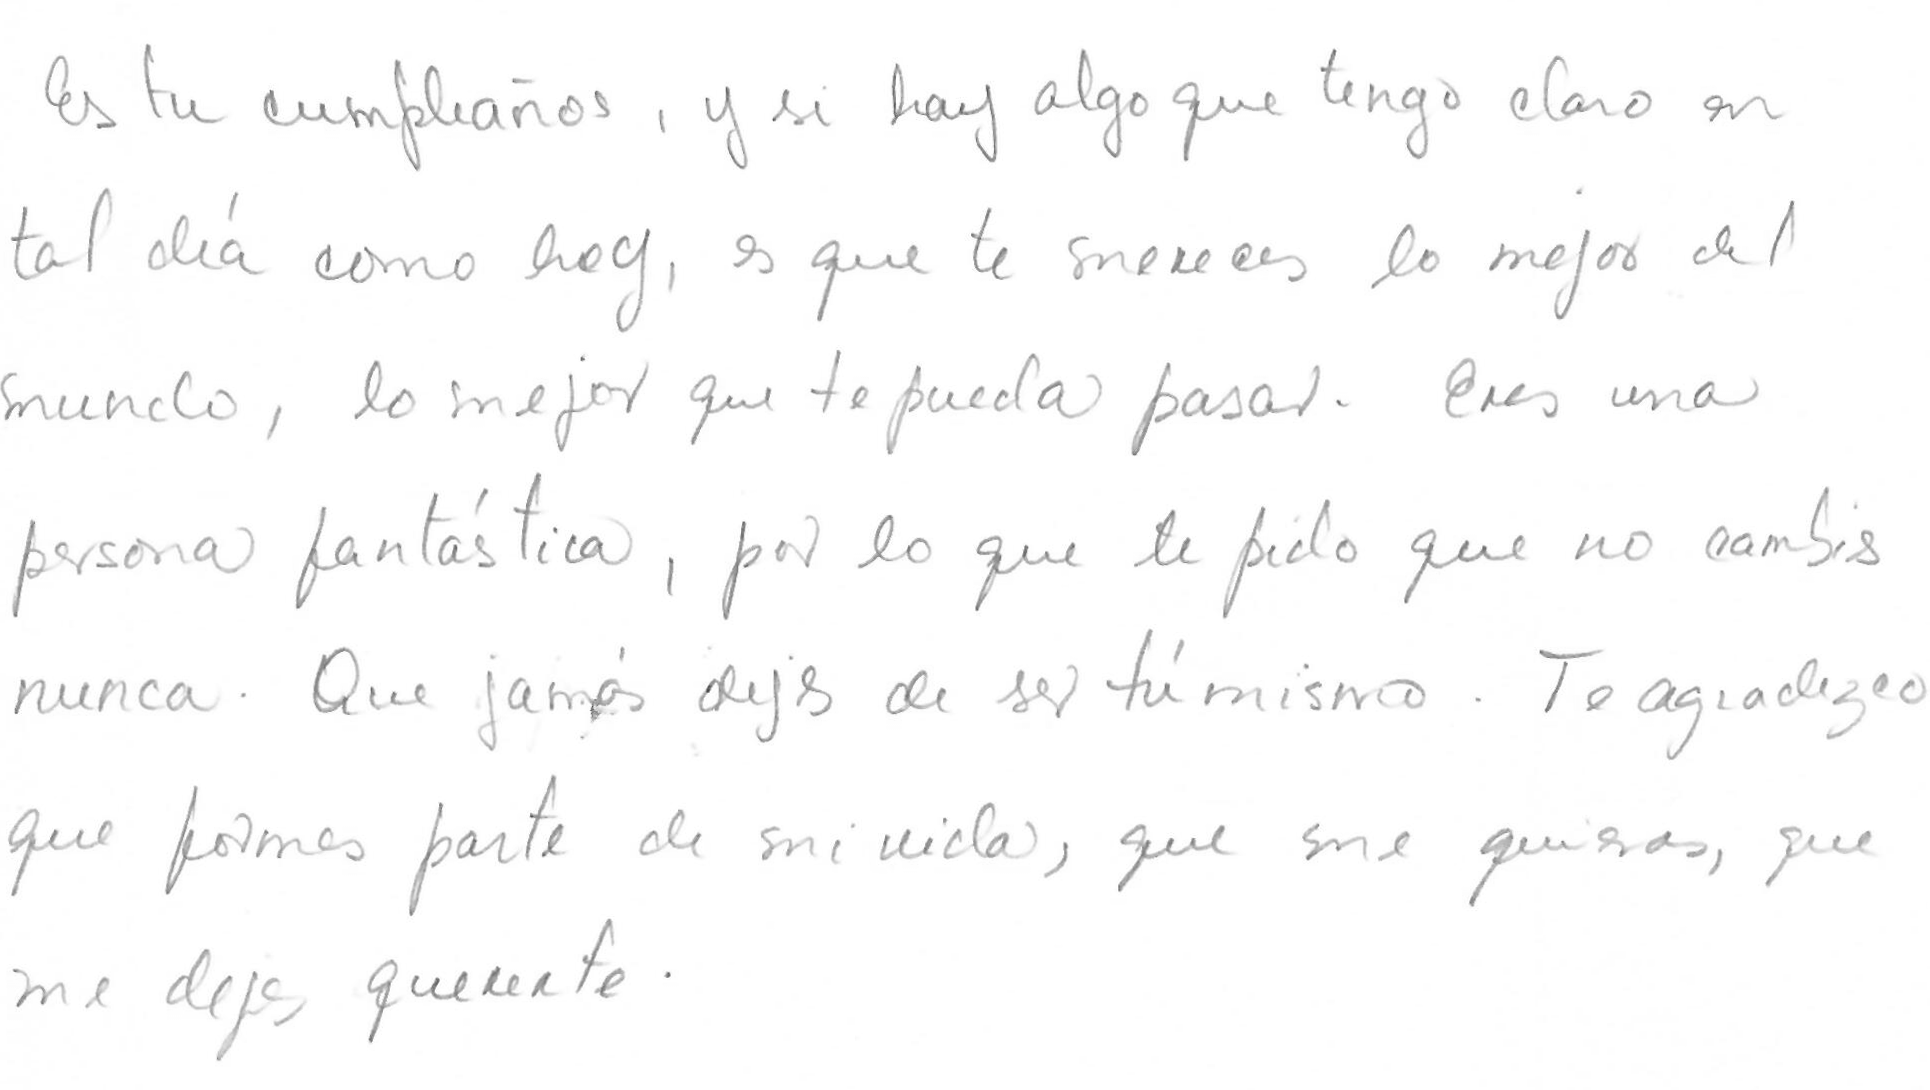 Es tu cumpleaños, y si hay algo que tengo claro en
tal día como hoy, es que te mereces lo mejor del
mundo, lo mejor que te pueda pasar. Eres una
persona fantástica, por lo que te pido que no cambies
nunca. Que jamás dejes de ser tú mismo. Te agradezco
que formes parte de mi vida, que me quieras, que
me dejes quererte.